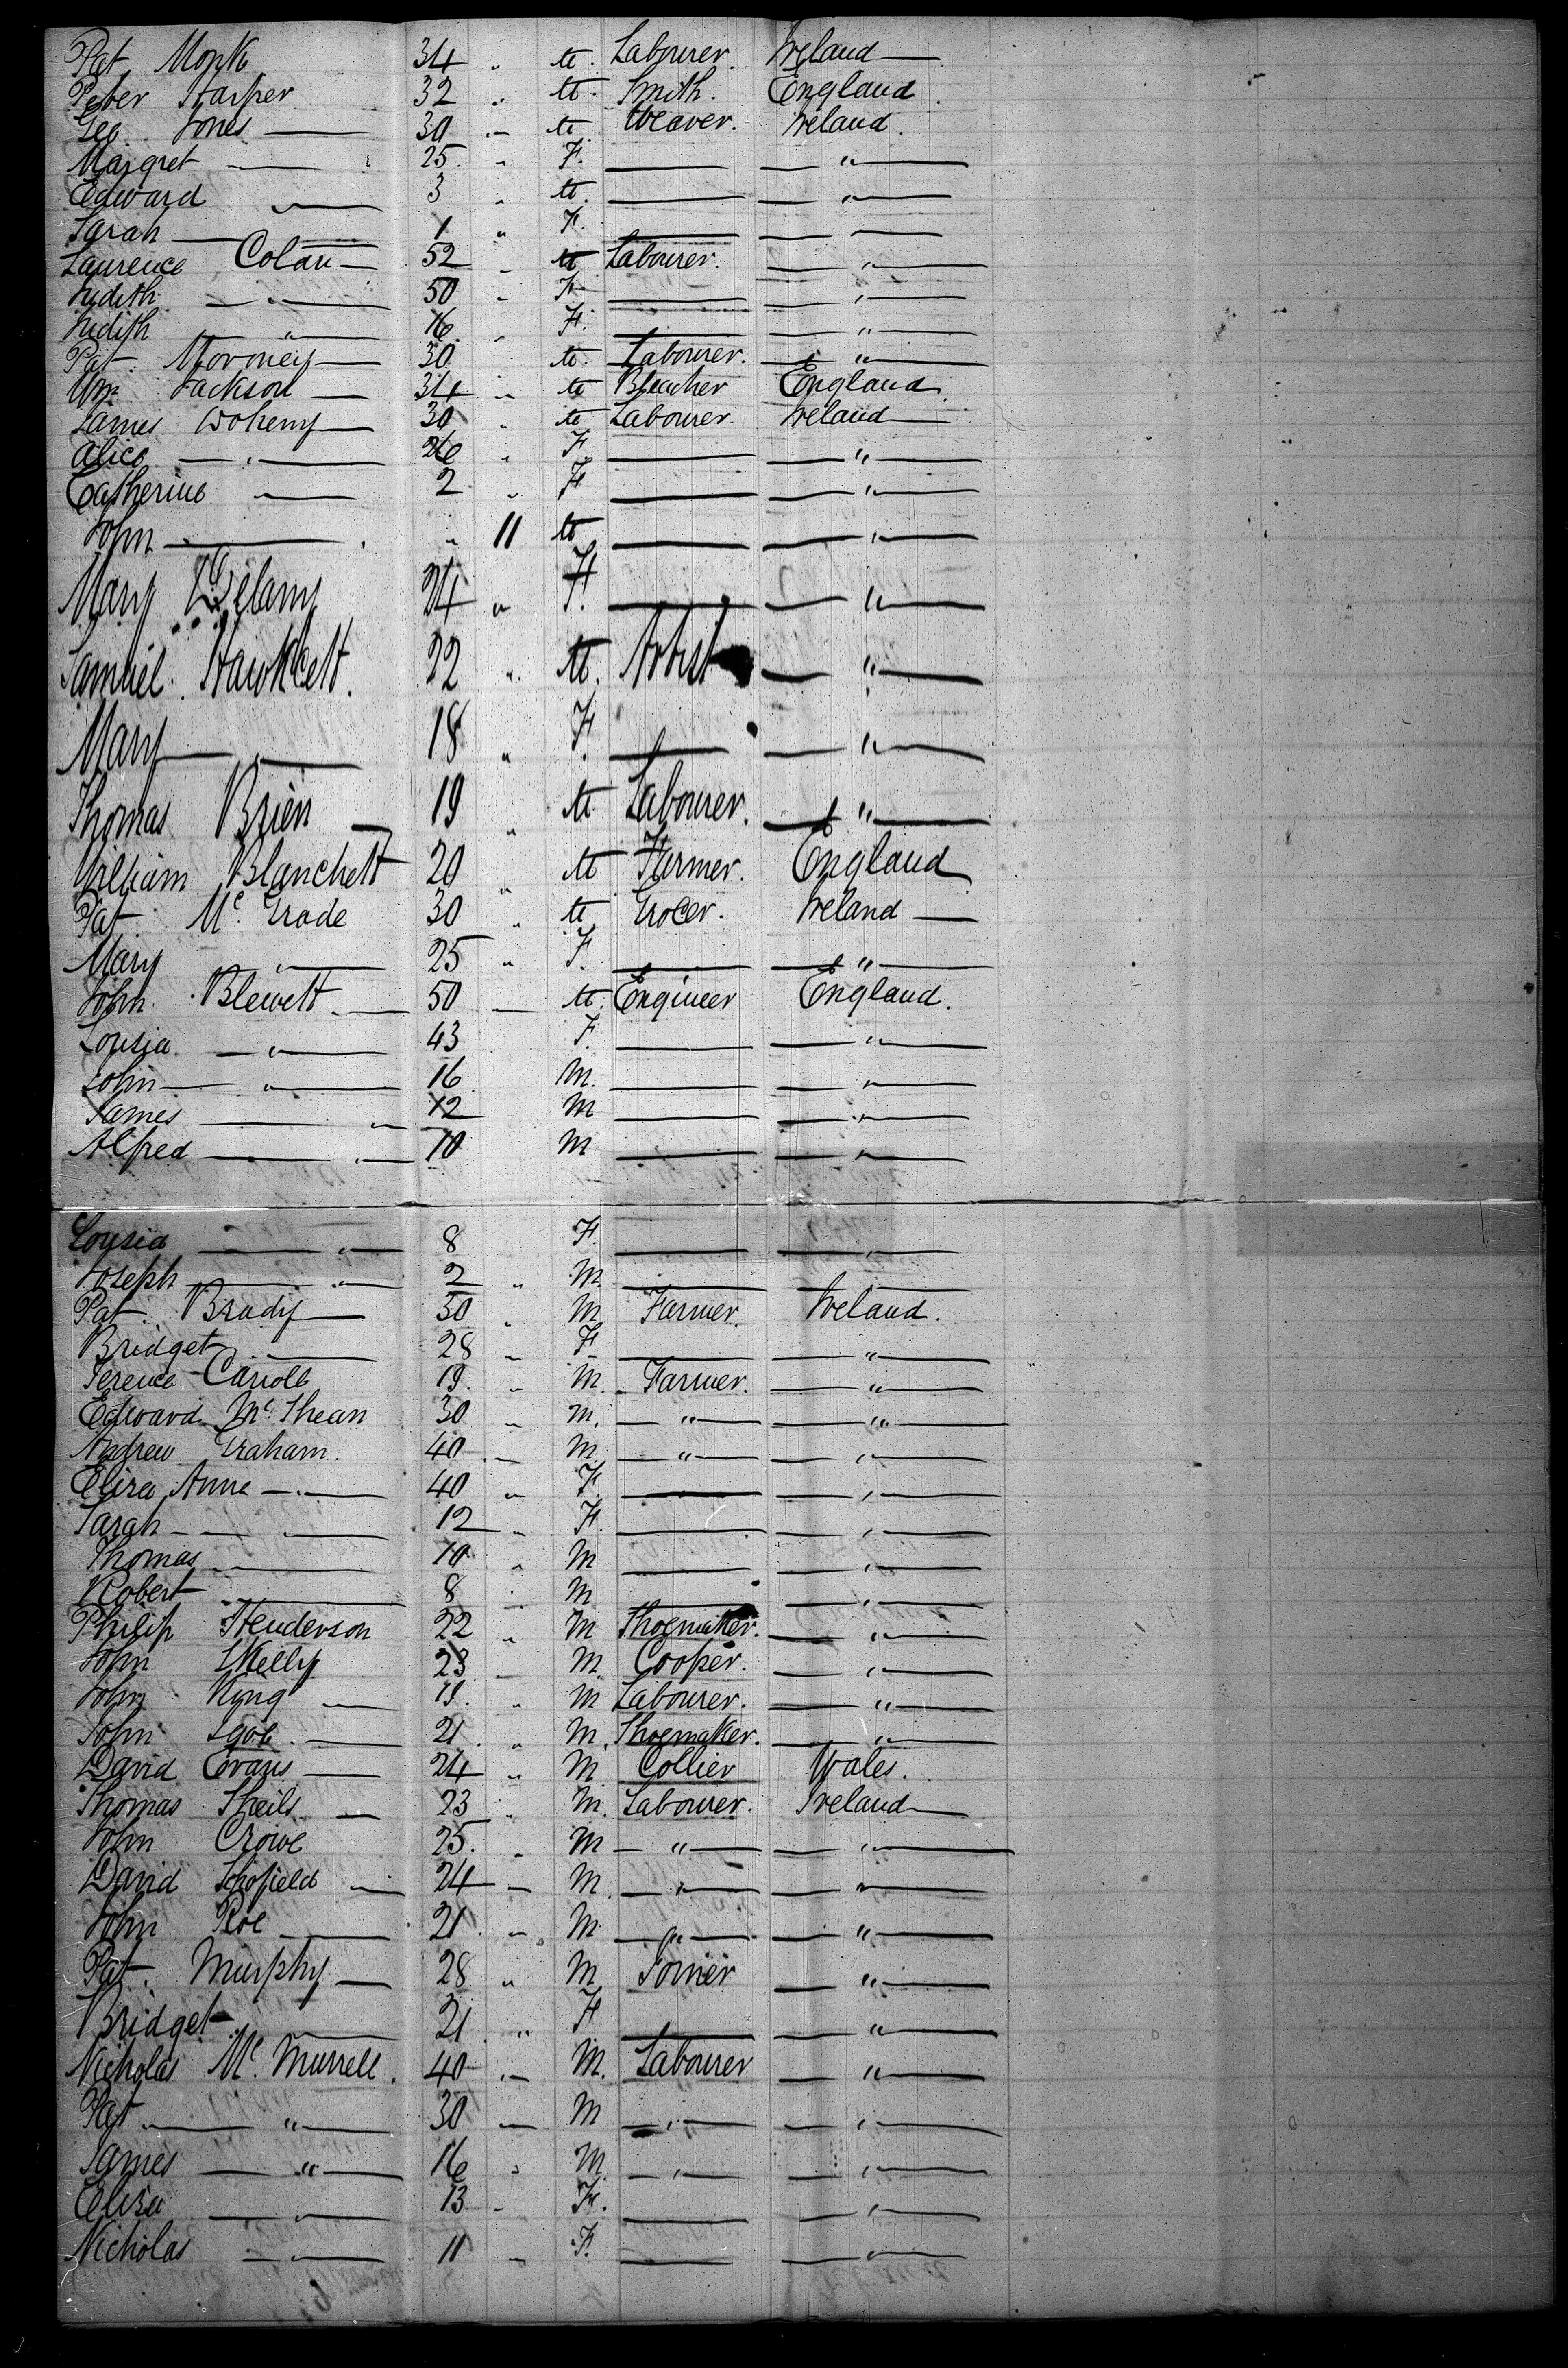 Pat Monk 34 " M. Labourer. Ireland —
Peter Harper 32 " M. Smith. England
Geo. Jones — 30 " M. Weaver. Ireland.
Margret — 25 " F. — — " —
Edward — 3 " M. — — " —
Sarah — 1 " F. — — —
Laurence Colan — 52 " M Labourer. — " —
Judith — " — 50 " F. — — " —
Judith " — 16 " F. — — " —
Pat. Moroney — 30 M. Labourer. — " —
Wm Jackson — 34 " M Bleacher England
James Doheny — 30 " M Labourer. Ireland —
Alice — " — 26 " F — — " —
Catherine — 2 " F — — " —
John — " 11 M — — " —
Mary Delany 24 " F. — — " —
Samuel. Hawkcett. 22 " M. Artist — " —
Mary — " — 18 " F. — — " —
Thomas Brien — 19 " M Labourer. — " —
William Blanchett 20 " M Farmer. England
Pat. Mc. Grade 30 " M Grocer. Ireland —
Mary " — 25 " F. — — " —
John Blewett — 50 — M. Engineer England.
Lousia — " — 43 F. — — " —
John — " — 16 M. — — " —
James — " 12 M — — " —
Alfred — " — 10 M — — " —
Lousia — " — 8 F. — — " —
Joseph — " — 2 " M. — —
Pat. Brady — 30 " M Farmer. Ireland.
Bridget — 28 " F — — " —
Terence Carroll 19. " M. Farmer. — " —
Edward Mc. Shean 30 " M. — " — — " —
Andrew Graham. 40 " M — " — — " —
Eliza Anne — 40 " F. — — " —
Sarah — " — 12 " F. — — " —
Thomas — 10 " M — — " —
Robert — 8 " M — — " —
Philip Henderson 22 " M Shoemaker. — " —
John Kelly 23 " M. Cooper. — " —
John King — 19. " M Labourer. — " —
John — 21 " M. Shoemaker. — " —
David Evans — 24 " M Collier Wales.
Thomas Sheils — 23 " M. Labourer. Ireland —
John Crowe 25. " M — " — — " —
David Schofield — 24 — M — " — — " —
John Roe — 21 " M — " — — " —
Pat. Murphy — 28 " M Joiner — " —
Bridget — 21 " F — — " —
Nicholas Mc. Murrell. 40 " M. Labourer — " —
Pat — " — 30 — M — " — — " —
James — " — 16 " M — " — — " —
Eliza — " — 13 " F. — — " —
Nicholas — " — 11 " F. — — " —